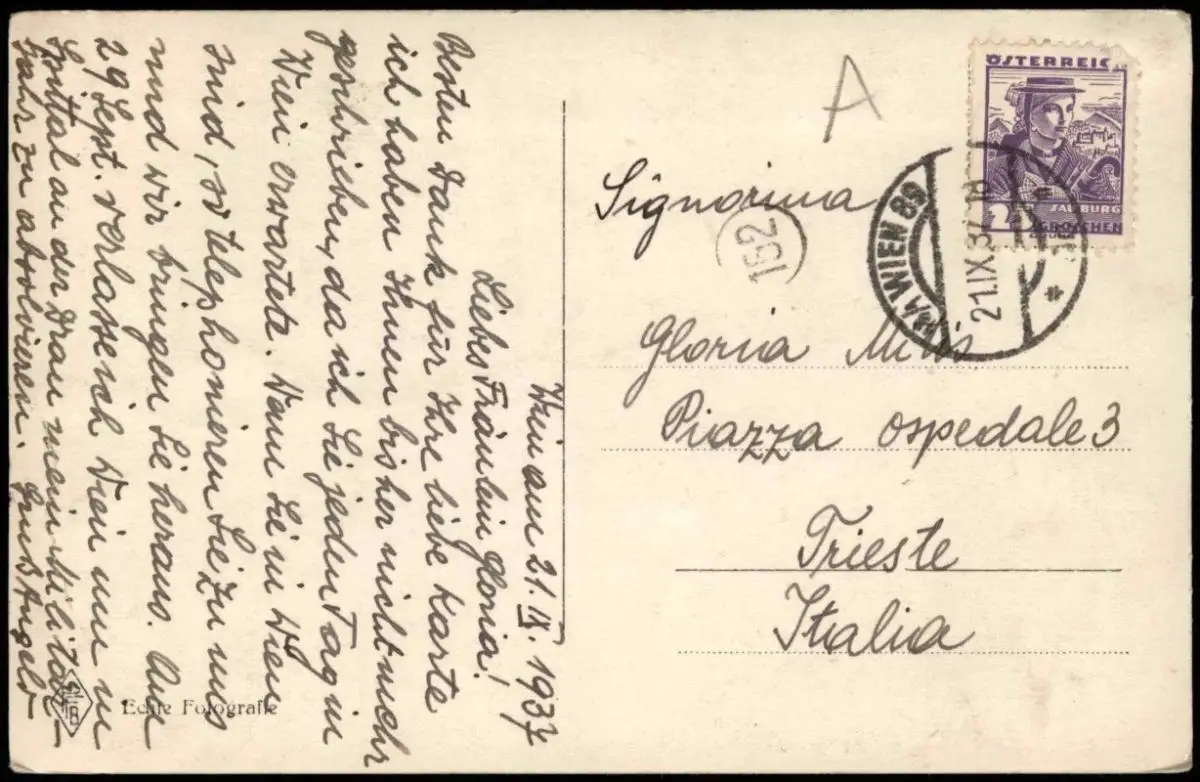 Wien am 21. IX. 1937
Liebes Fräulein Gloria!
Besten Dank für Ihre liebe Karte
ich haben Ihnen bisher nicht mehr
geschrieben, da ich Sie jeden Tag in
Wien erwartete. Wenn Sie in Wien
sind, so telephonieren Sie zu uns
und wir bringen Sie heraus. Am
29 Sept. verlasse ich Wien um in
Spittal an der Drau mein Militär-
Jahr zu absolvieren.
Echte Fotografie
A
Signorina
Gloria
Piazza ospedale 3
Trieste
Italia
162
ÖSTERREICH
SALZBURG
GROSCHEN
WIEN 89
21.IX.37